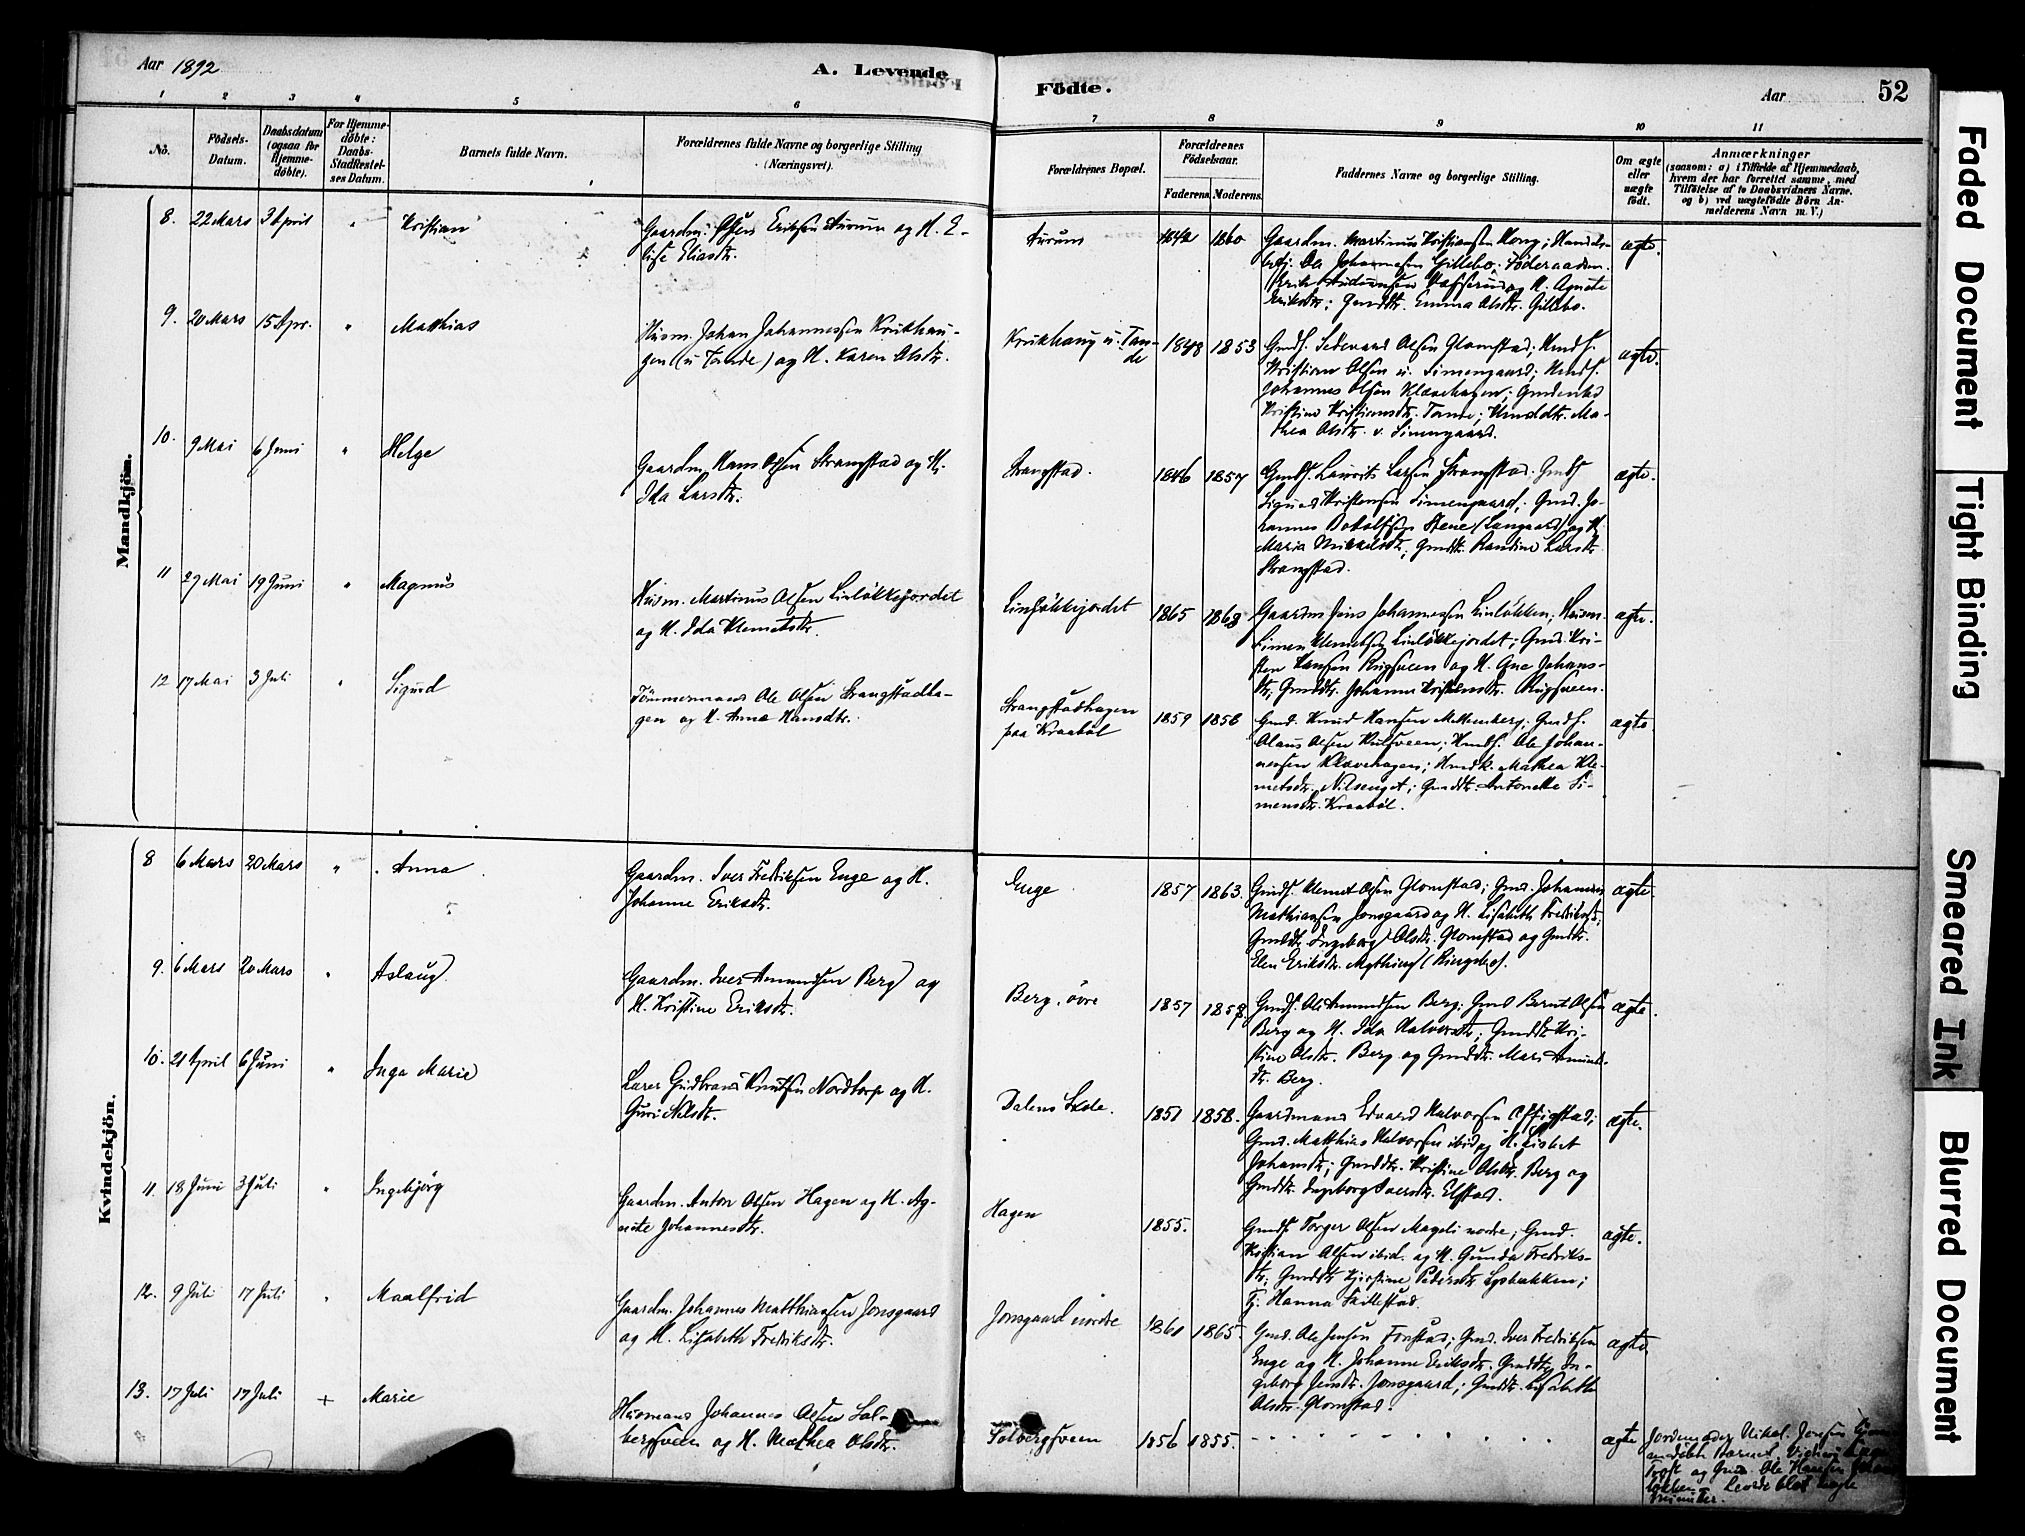 Aar 1892
A. Levende
Födte.
Aar
52
1 2 3 4 5 6 7 8 9 10 11
No.
Födsels-
Datum.
Daabsdatum
(ogsaa for
Hjemme-
döbte).
For Hjemme-
döbte:
Daabs-
Stadfæstel-
ses Datum.
Barnets fulde Navn.
Forældrenes fulde Navne og borgerlige Stilling
(Næringsvei).
Forældrenes Bopæl.
Forældrenes
Födselsaar.
Faderens. Moderens.
Faddernes Navne og borgerlige Stilling.
Om ægte
eller
uægte
födt.
Anmærkninger
(saasom: a) i Tilfælde af Hjemmedaab,
hvem der har forrettet samme, med
Tilföielse af to Daabsvidners Navne,
og b) ved uægtefödte Börn An-
melderens Navn m. V.)
Mandkjön.
8. 22 Mars 3 April " Kristian
Gaardm. Eriksen Aurum og H. E-
lise Eliasdtr.
Aurum
1842 1860
Gaardm. Martinus Kristiansen
Johannesen Gillebo; Föderaadsm.
og H. Agnete
Eriksdtr; Gmdtr. Emma Olsdtr. Gillebo.
ægte.
9. 20 Mars 15 Apr. " Matthias
Husm. Johan Johannessen Krukhau-
gen (u Tande) og H. Karen Olsdtr.
Krukhaug u. Tan-
de
1848 1853
Gmds. Olsen Glomstad; Gmds.
Kristian Olsen u. Simengaard;
Johannes Olsen Klævehagen;
Kristine Kristiansdtr. Tande; Ma-
thea Olsdtr. v. Simengaard.
ægte.
10. 9 Mai 6 Juni " Helge
Gaardm. Hans Olsen Strangstad og H.
Ida Larsdtr.
Strangstad.
1846 1857
Gmds. Laurits Larsen Strangstad. Gmds
Sigurd Kristensen Simengaard; Gmd. Jo-
hannes Botolfsen Stene (Langaard) og H.
Maria Mikkelsdtr; Gmdtr. Randine Larsdtr
Strangstad.
ægte.
11 29 Mai 19 Juni " Magnus
Husm. Martinus Olsen Linlökkejordet
og H. Ida Klemetsdtr.
Linlökkejordet
1865 1868
Gaardm Jens Johannessen Linlökken; Husm.
Simen Klemetsen Linlökkejordet; Gmd. Kri-
sten Hansen Ringsveen og H. Ane Johans-
dtr, Gmdtr. Johanne Kristiansdtr. Ringsveen.
ægte.
12 17 Mai 3 Juli " Sigurd
Tömmermand Ole Olsen Strangstadha-
gen og H. Anne Hansdtr.
Strangstadhagen
paa Kraaböl
1859 1856
Gmd. Knud Hansen Mellemberg; Gmds.
Olaus Olsen Kulsveen; Ole Johan-
nessen Klævehagen; Mathea Kle-
metsdtr. Nilsenget; Gmdtr. Antonette Si-
mensdtr. Kraaböl.
ægte
Kvindekjön.
8 6 Mars 20 Mars " Anna
Gaardm. Iver Fredriksen Enge og H.
Johanne Eriksdtr.
Enge
1857 1863.
Gmds. Klemet Olsen Glomstad; Gmd. Johannes
Mathiasen Jonsgaard og H. Lisabeth Fredriksdtr;
Gmdtr. Ingeborg Olsdtr. Glomstad og Gmdtr.
Elen Eriksdtr. Mything (Ringebo).
ægte.
9. 6 Mars 20 Mars " Aslaug
Gaardm. Iver Amundsen Berg og
H. Kristine Eriksdtr.
Berg, övre
1857 1858.
Gmds. Ole Amundsen Berg; Gmd Bernt Olsen
Berg og H. Ida Halvorsdtr; Gmdtr Kri-
stine Olsdtr. Berg og Gmdtr. Mari Amunds-
dtr. Berg.
ægte.
10. 21 April 6 Juni " Inga Marie
Lærer Gudbrand Knutsen Nordtorp og H.
Guri Nilsdtr.
Dalens Skole.
1851 1858.
Gaardmand Edvard Halvorsen Offigstad;
Gmd. Matthias Halvorsen ibid og H. Lisbet
Johansdtr; Gmdtr. Kristine Olsdtr. Berg og
Gmdtr. Ingeborg Iversdtr. Elstad.
ægte.
11. 18 Juni 3 Juli " Ingebjörg
Gaardm. Anton Olsen Hagen og H. Ag-
nete Johannesdtr.
Hagen
1855.
Gmds Torger Olsen Mageli nordre; Gmd.
Kristian Olsen ibid. og H. Gunda Fredriks-
dtr; Gmdtr Kjerstine Pedersdtr Lysbakken;
Tj. Hanna Skillestad.
ægte.
12. 9 Juli 17 Juli " Maalfrid
Gaardm. Johannes Matthiassen Jonsgaard
og H. Lisabeth Fredriksdtr.
Jonsgaard nordre
1861 1865.
Gmd. Ole Jensen Fonstad; Gmd. Iver Fredriksen
Enge og H. Johanne Eriksdtr. Gmdtr. In-
geborg Jensdtr. Jonsgaard; Gmdtr. Lisabeth
Olsdtr. Glomstad.
ægte.
13. 17 Juli 17 Juli + Marie
Husmand Johannes Olsen Sol-
bergsveen og H. Mathea Olsdtr.
Solbergsveen
1856 1855.
ægte
Jordemoder
Barnet.
og Gmd. Ole Hansen
Levede blot nogle
Minutter.
Faded Document
Tight Binding
Smeared Ink
Blurred Document